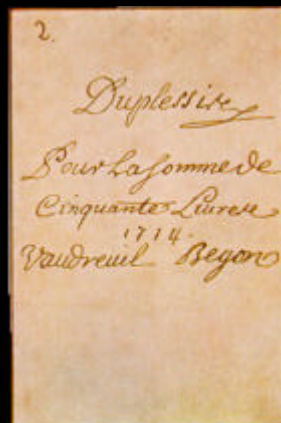 2.
Duplessis
Pour La Somme de
Cinquante Livres
1714.
Vaudreuil Begon